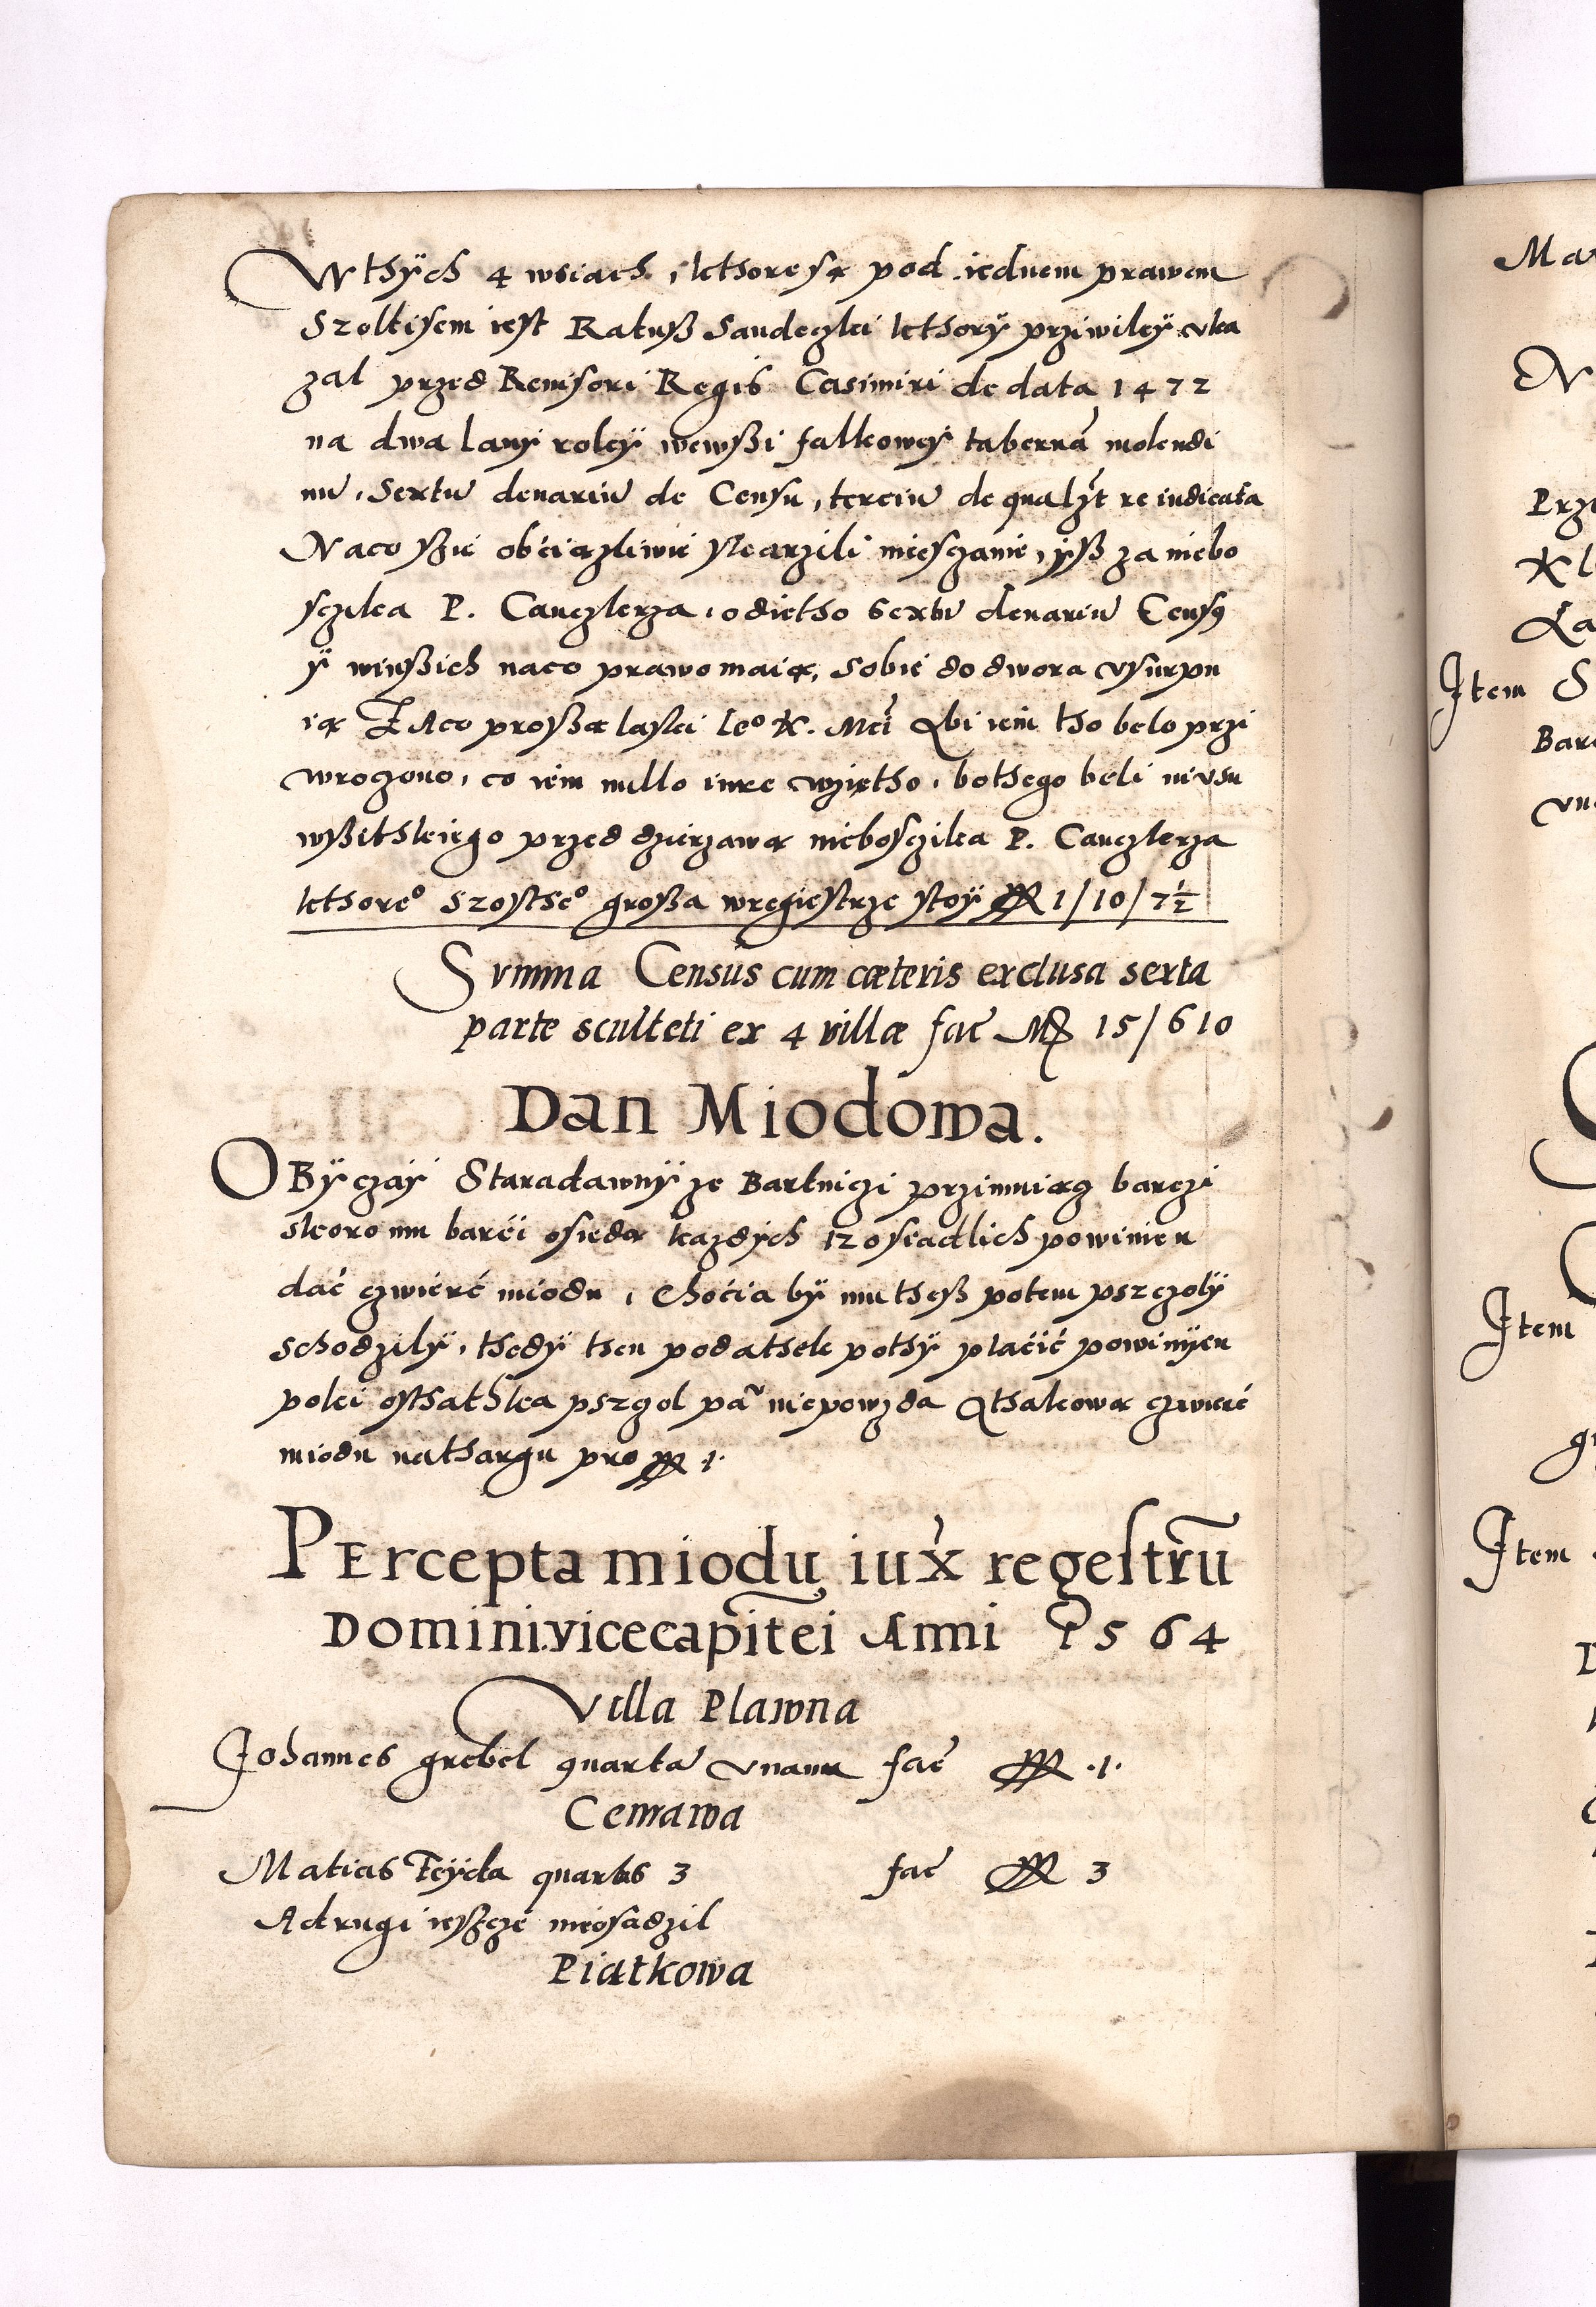 W thÿch 4 wsiach, kthore są pod iednem prawem
Szoltisem iest Ratuß Sandeczki kthorÿ prziwileÿ uka
zal przed Revisori Regis Casimiri de data 1472
na dwa lany roleÿ wewßi falkoweÿ tabernā molendi
nū, Sextū denariū de Censu, terciū de qualꝫt re iudicata
Naco ßie obciązliwie skarzili miesczanie, yß za niebo
sczika P. Canczlerza, odietho sextū denariū Censꝰ
ÿ winßich naco prawo maią, sobie do dwora usurpu
ią Zaco proßą laski ieº K. Mci Abi iem tho belo przi
wroczono, co iem nullo iure wzietho, bo thego beli in usu
wßithkiego przed dzierzawą niebosczika P. Canczlerza
kthoreº szosthº großa wregiestrze stoÿ M 1/10/7½
Summa Census cum cæteris exclusa sexta
parte sculteti ex 4 villæ fac Mr 15/6 10
Dan Miodowa.
OBÿczaÿ Staradawnÿ ze Bartniczi przimuiącz barczi
skoro mu barci osiedą kazdÿch 12 osiadlich powinien
dać czwierć miodu, chocia bÿ mu theß potem psrczolÿ
schodzilÿ, thedÿ then podathek pothÿ placić powinÿen
poki osthathka psczol pā nie powzda A thakową czwierć
miodu nathargu pro M 1.
PErcepta miodu iuẋ regestrū
Domini vicecapitei Anni 1564
Villa Plawna
Johannes grebel quartā unam fac M .1.
Ceniawa
Matias Feÿcla quartas 3 fac M 3
A drugi ießcze nieosadzil
Piątkowa
Ma
N
Prze
Kl
La
Item S
Bar
vn
Item
gr
Item